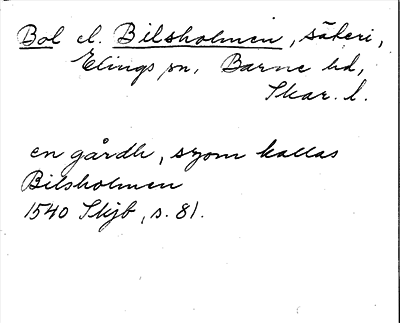 Bol el. Bilsholmen, säteri,
Elings sn, Barne hd,
Skar. l.
en gårdh, szom kallas
Bilsholmen
1540 Skjb, s. 81.